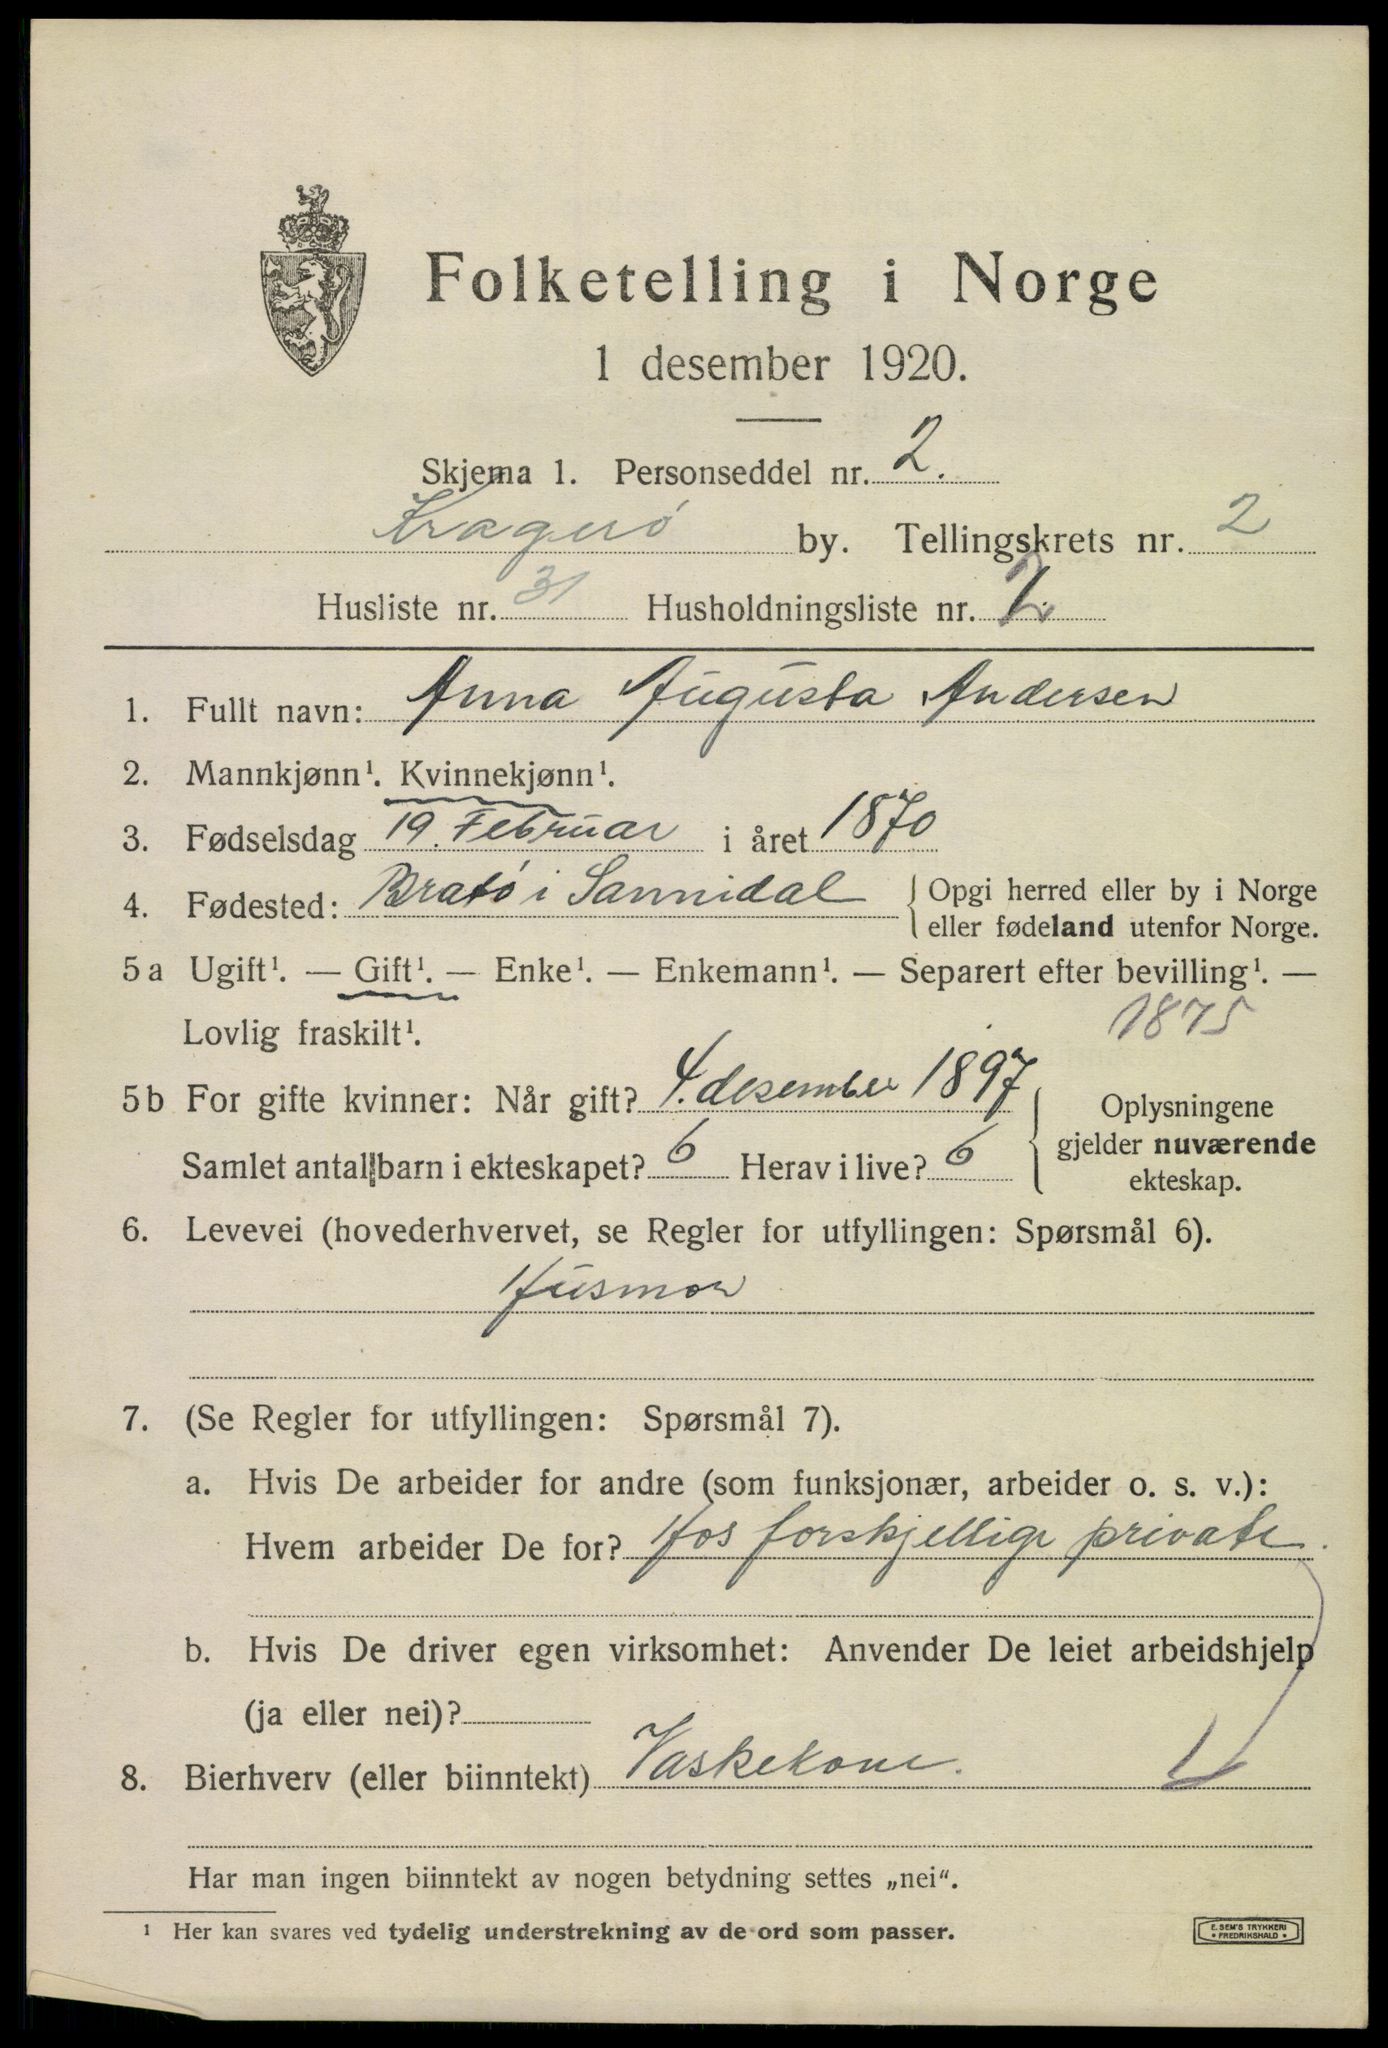 Folketelling i Norge
1 desember 1920.
Skjema 1. Personseddel nr. 2.
Kragerø by. Tellingskrets nr. 2
Husliste nr. 31 Husholdningsliste nr. 2
1. Fullt navn: Anna Augusta Andersen
2. Mannkjønn¹. Kvinnekjønn¹.
3. Fødselsdag 19. Februar i året 1870
4. Fødested: Bratø i Sannidal { Opgi herred eller by i Norge
eller fødeland utenfor Norge.
5 a Ugift¹. — Gift¹. — Enke¹. — Enkemann¹. — Separert efter bevilling¹. —
Lovlig fraskilt¹. 1875
5 b For gifte kvinner: Når gift? 4. desember 1897
Samlet antall barn i ekteskapet? 6 Herav i live? 6
{ Oplysningene
gjelder nuværende
ekteskap.
6. Levevei (hovederhvervet, se Regler for utfyllingen: Spørsmål 6).
Husmor
7. (Se Regler for utfyllingen: Spørsmål 7).
a. Hvis De arbeider for andre (som funksjonær, arbeider o. s. v.):
Hvem arbeider De for? Hos forskjellige private.
b. Hvis De driver egen virksomhet: Anvender De leiet arbeidshjelp
(ja eller nei)?
8. Bierhverv (eller biinntekt) Vaskekone.
Har man ingen biinntekt av nogen betydning settes „nei“.
¹ Her kan svares ved tydelig understrekning av de ord som passer.
E. SEM'S TRYKKERI
• FREDRIKSHALD •